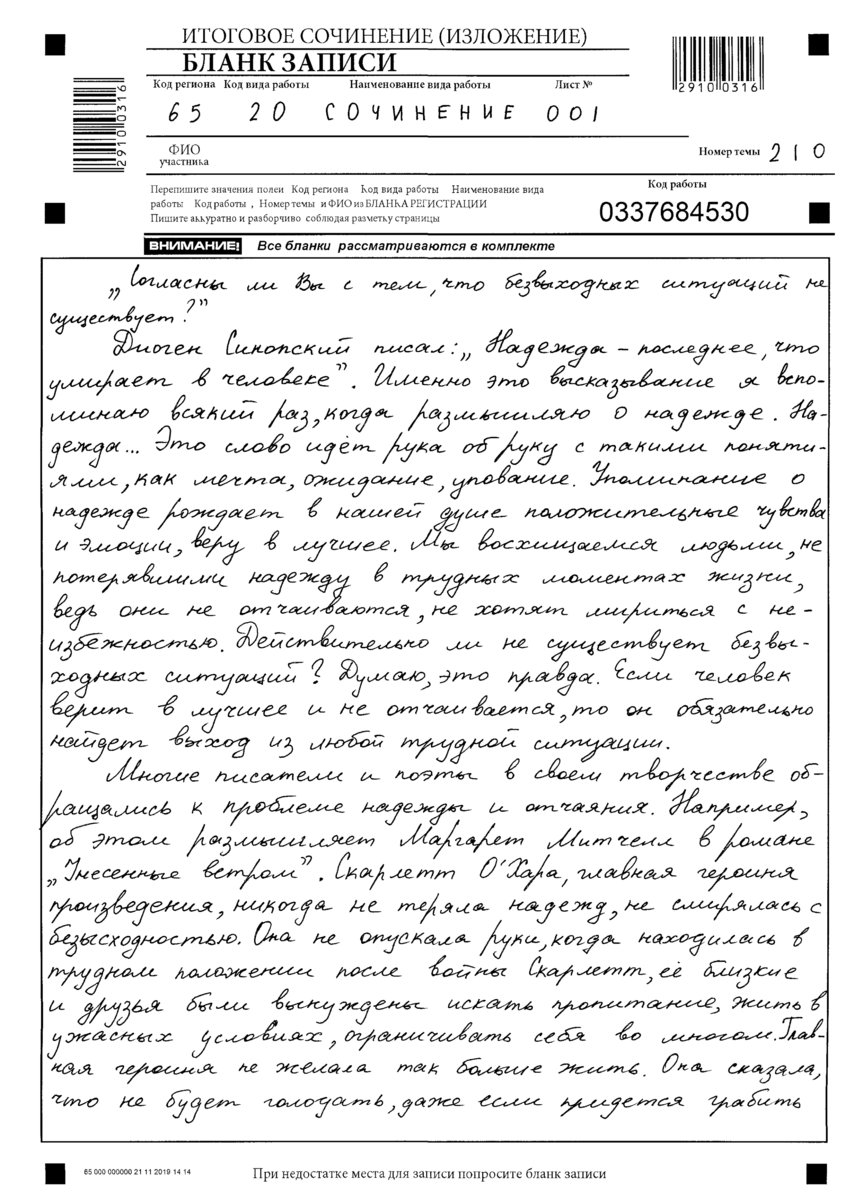 ИТОГОВОЕ СОЧИНЕНИЕ (ИЗЛОЖЕНИЕ)
БЛАНК ЗАПИСИ
Код региона Код вида работы Наименование вида работы Лист №
65 20 СОЧИНЕНИЕ 001
29100316
29100316
ФИО
участника
Номер темы 210
Перепишите значения полей Код региона Код вида работы Наименование вида
работы Код работы , Номер темы и ФИО из БЛАНКА РЕГИСТРАЦИИ
Пишите аккуратно и разборчиво соблюдая разметку страницы
Код работы
0337684530
ВНИМАНИЕ! Все бланки рассматриваются в комплекте
„Согласны ли Вы с тем, что безвыходных ситуаций не
существует?"
Диоген Синопский писал: „Надежда – последнее, что
умирает в человеке". Именно это высказывание я вспо-
минаю всякий раз, когда размышляю о надежде. На-
дежда... Это слово идёт рука об руку с такими поняти-
ями, как мечта, ожидание, упование. Упоминание о
надежде рождает в нашей душе положительные чувства
и эмоции, веру в лучшее. Мы восхищаемся людьми, не
потерявшими надежду в трудных моментах жизни,
ведь они не отчаиваются, не хотят мириться с не-
избежностью. Действительно ли не существует безвы-
ходных ситуаций? Думаю, это правда. Если человек
верит в лучшее и не отчаивается, то он обязательно
найдет выход из любой трудной ситуации.
Многие писатели и поэты в своем творчестве об-
ращались к проблеме надежды и отчаяния. Например,
об этом размышляет Маргарет Митчелл в романе
„Унесенные ветром". Скарлетт О'Хара, главная героиня
произведения, никогда не теряла надежд, не смирялась с
безысходностью. Она не опускала руки, когда находилась в
трудном положении после войны Скарлетт, её близкие
и друзья были вынуждены искать пропитание, жить в
ужасных условиях, ограничивать себя во многом. Глав-
ная героиня не желала так больше жить. Она сказала,
что не будет голодать, даже если придется грабить
65 000 000000 21 11 2019 14 14
При недостатке места для записи попросите бланк записи